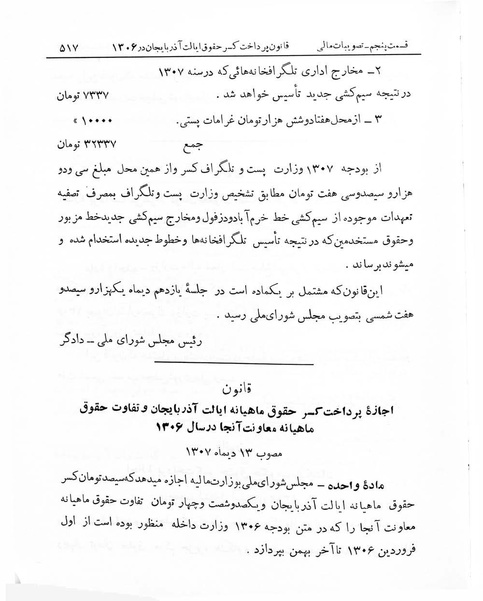 قسمت پنجم - تصویبات مالی قانون پرداخت کسر حقوق ایالت آذربایجان در ۱۳۰۶ ۵۱۷
۲ – مخارج اداری تلگرافخانه‌هائی که در سنه ۱۳۰۷
در نتیجه سیم‌کشی جدید تأسیس خواهد شد . ۷۳۳۷ تومان
۳ – از محل هفتاد و شش هزار تومان غرامات پستی. ۱۰۰۰۰ »
جمع ۳۲۳۳۷ تومان
از بودجه ۱۳۰۷ وزارت پست و تلگراف کسر و از همین محل مبلغ سی و دو
هزار و سیصد و سی هفت تومان مطابق تشخیص وزارت پست و تلگراف بمصرف تصفیه
تعهدات موجوده از سیم‌کشی خط خرم‌آباد و دزفول و مخارج سیم‌کشی جدید خط مزبور
و حقوق مستخدمین که در نتیجه تأسیس تلگرافخانه‌ها و خطوط جدیده استخدام شده و
میشوند برساند .
این قانون که مشتمل بر یکماده است در جلسهٔ یازدهم دیماه یکهزار و سیصد و
هفت شمسی بتصویب مجلس شورای ملی رسید .
رئیس مجلس شورای ملی – دادگر
قانون
اجازهٔ پرداخت کسر حقوق ماهیانه ایالت آذربایجان و تفاوت حقوق
ماهیانه معاونت آنجا در سال ۱۳۰۶
مصوب ۱۳ دیماه ۱۳۰۷
مادهٔ واحده – مجلس شورای ملی بوزارت مالیه اجازه میدهد که سیصد تومان کسر
حقوق ماهیانه ایالت آذربایجان و یکصد و شصت و چهار تومان تفاوت حقوق ماهیانه
معاونت آنجا را که در متن بودجه ۱۳۰۶ وزارت داخله منظور بوده است از اول
فروردین ۱۳۰۶ تا آخر بهمن بپردازد .